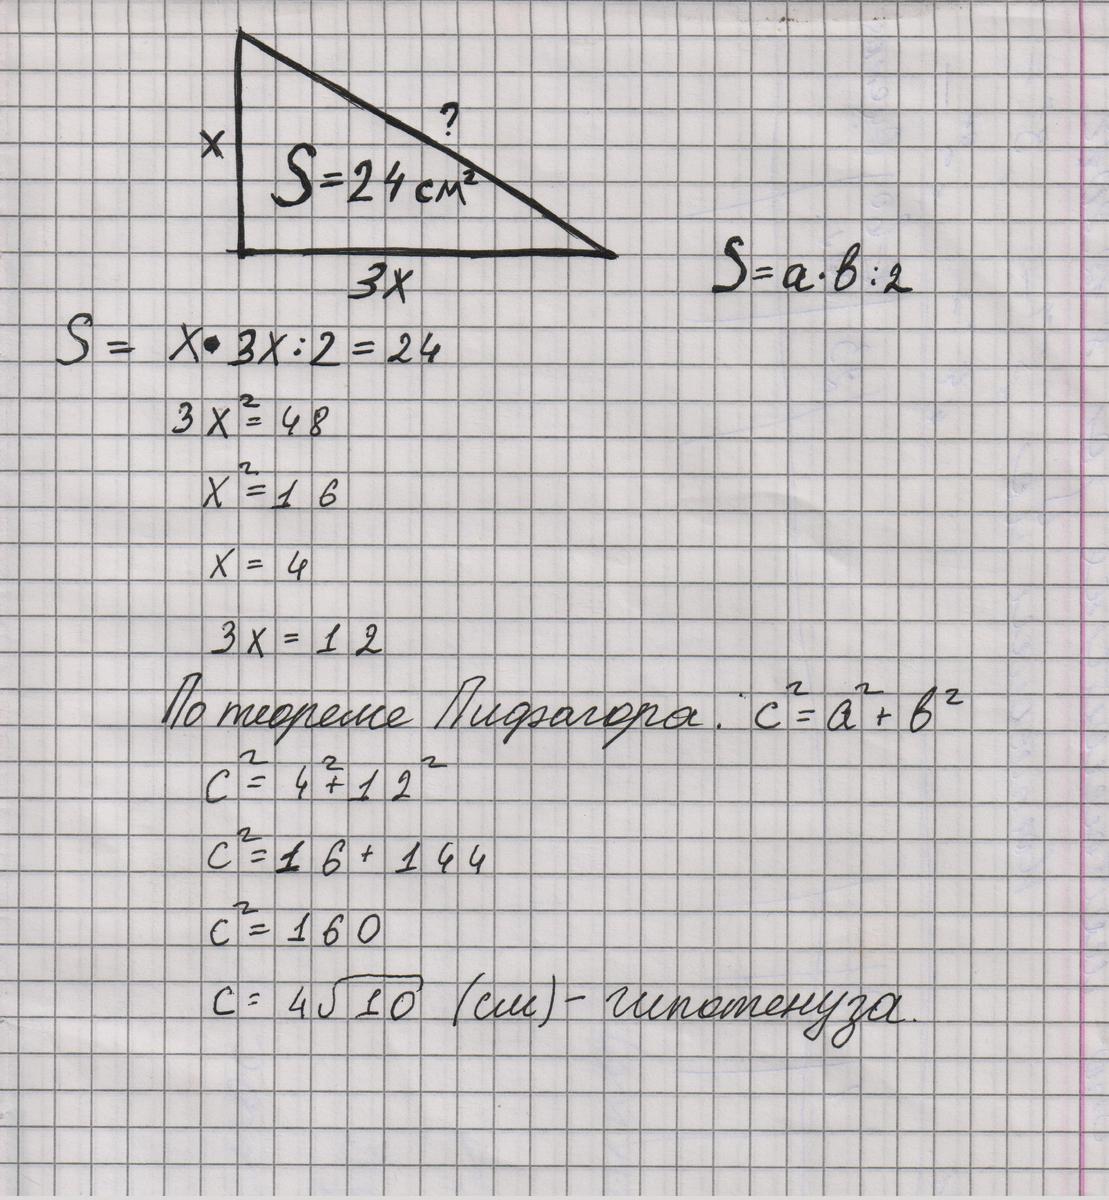 ?
x
S=24 см²
3x
S=a·b:2
S= x·3x:2=24
3x²=48
x²=16
x=4
3x=12
По теореме Пифагора: c²=a²+b²
c²=4²+12²
c²=16+144
c²=160
c=4√10 (см)- гипотенуза.